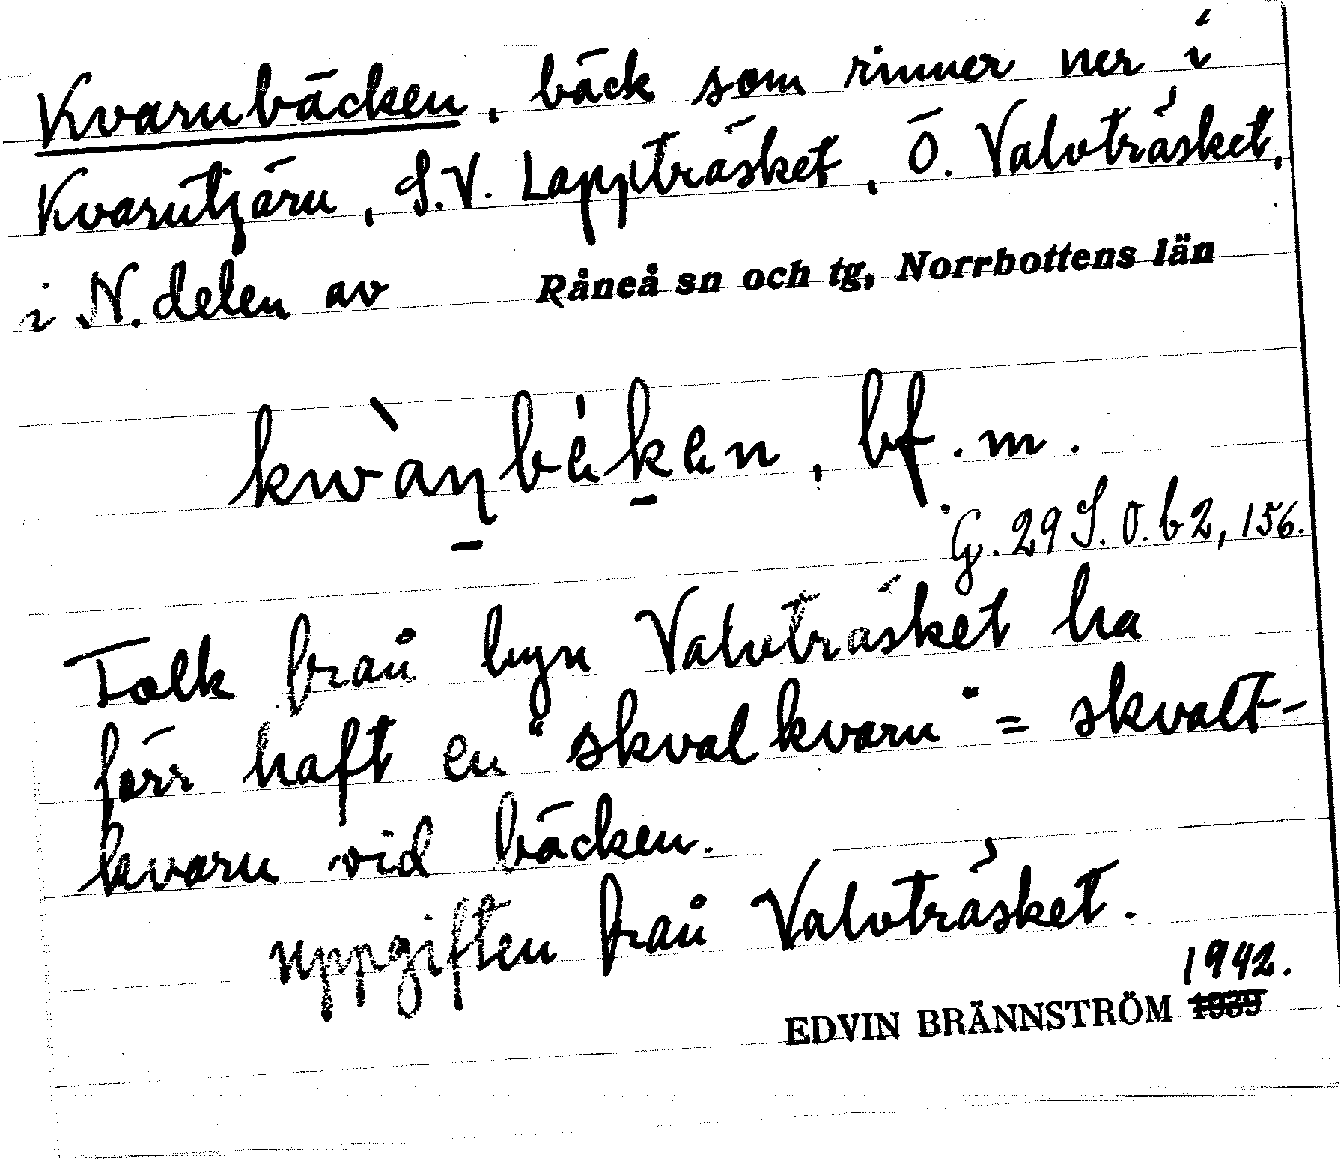 Kvarnbäcken, bäck som rinner ner i
Kvarntjärn, S.V. Lappträsket, Ö. Valvträsket,
i N. delen av Råneå sn och tg, Norrbottens län
bf. m.
G. 29 S. Ö. b 2, 156.
Folk från byn Valvträsket ha
förr haft en "skvalkvarn" = skvalt-
kvarn vid bäcken.
uppgiften från Valvträsket.
1942.
EDVIN BRÄNNSTRÖM 1939